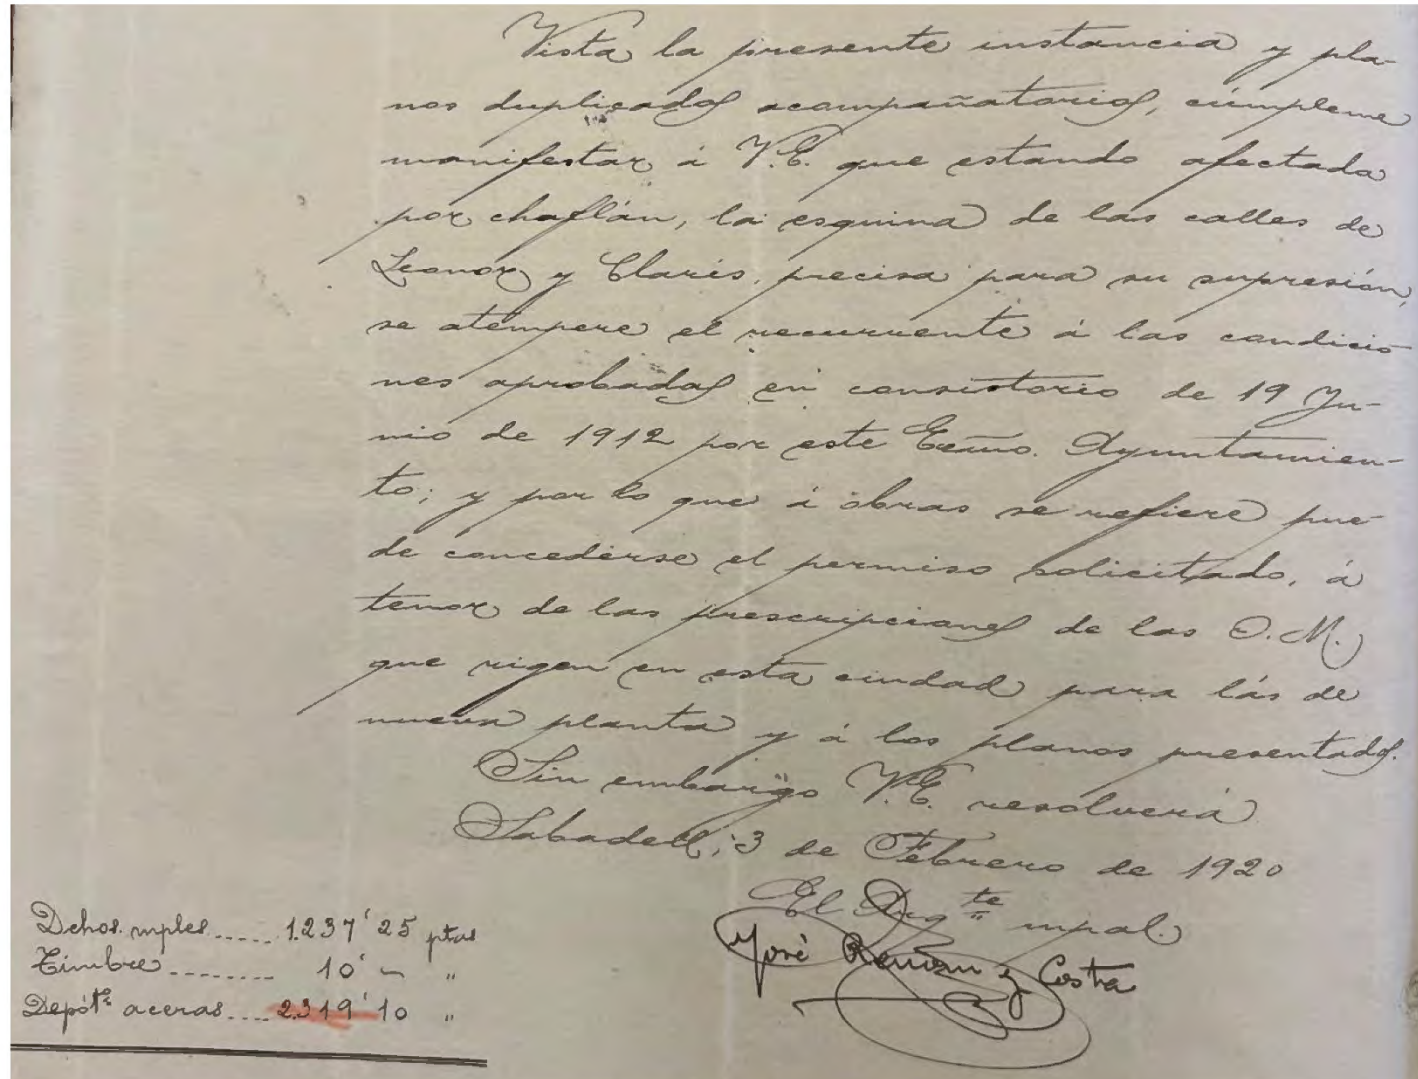 Vista la presente instancia y pla-
nos duplicados acompañatorios, cúmpleme
manifestar á V.E. que estando afectada
por chaflán, la esquina de las calles de
Leonor y Clarís, precisa para su supresión,
se atempere el recurrente á las condicio
nes aprobadas en consistorio de 19 Ju-
nio de 1912 por este Excmo. Ayuntamien-
to; y por lo que á obras se refiere pue-
de concederse el permiso solicitado, á
tenor de las prescripciones de las O.M.
que rigen en esta ciudad para lás de
nueva planta y á los planos presentados.
Sin embargo V.E. resolverá
Sabadell, 3 de Febrero de 1920
El Arqte mpal
José Renom y Costa
Dchos. mples ..... 1.237'25 ptas
Timbre ........ 10' — "
Depót.º aceras .... 2.319'10 "